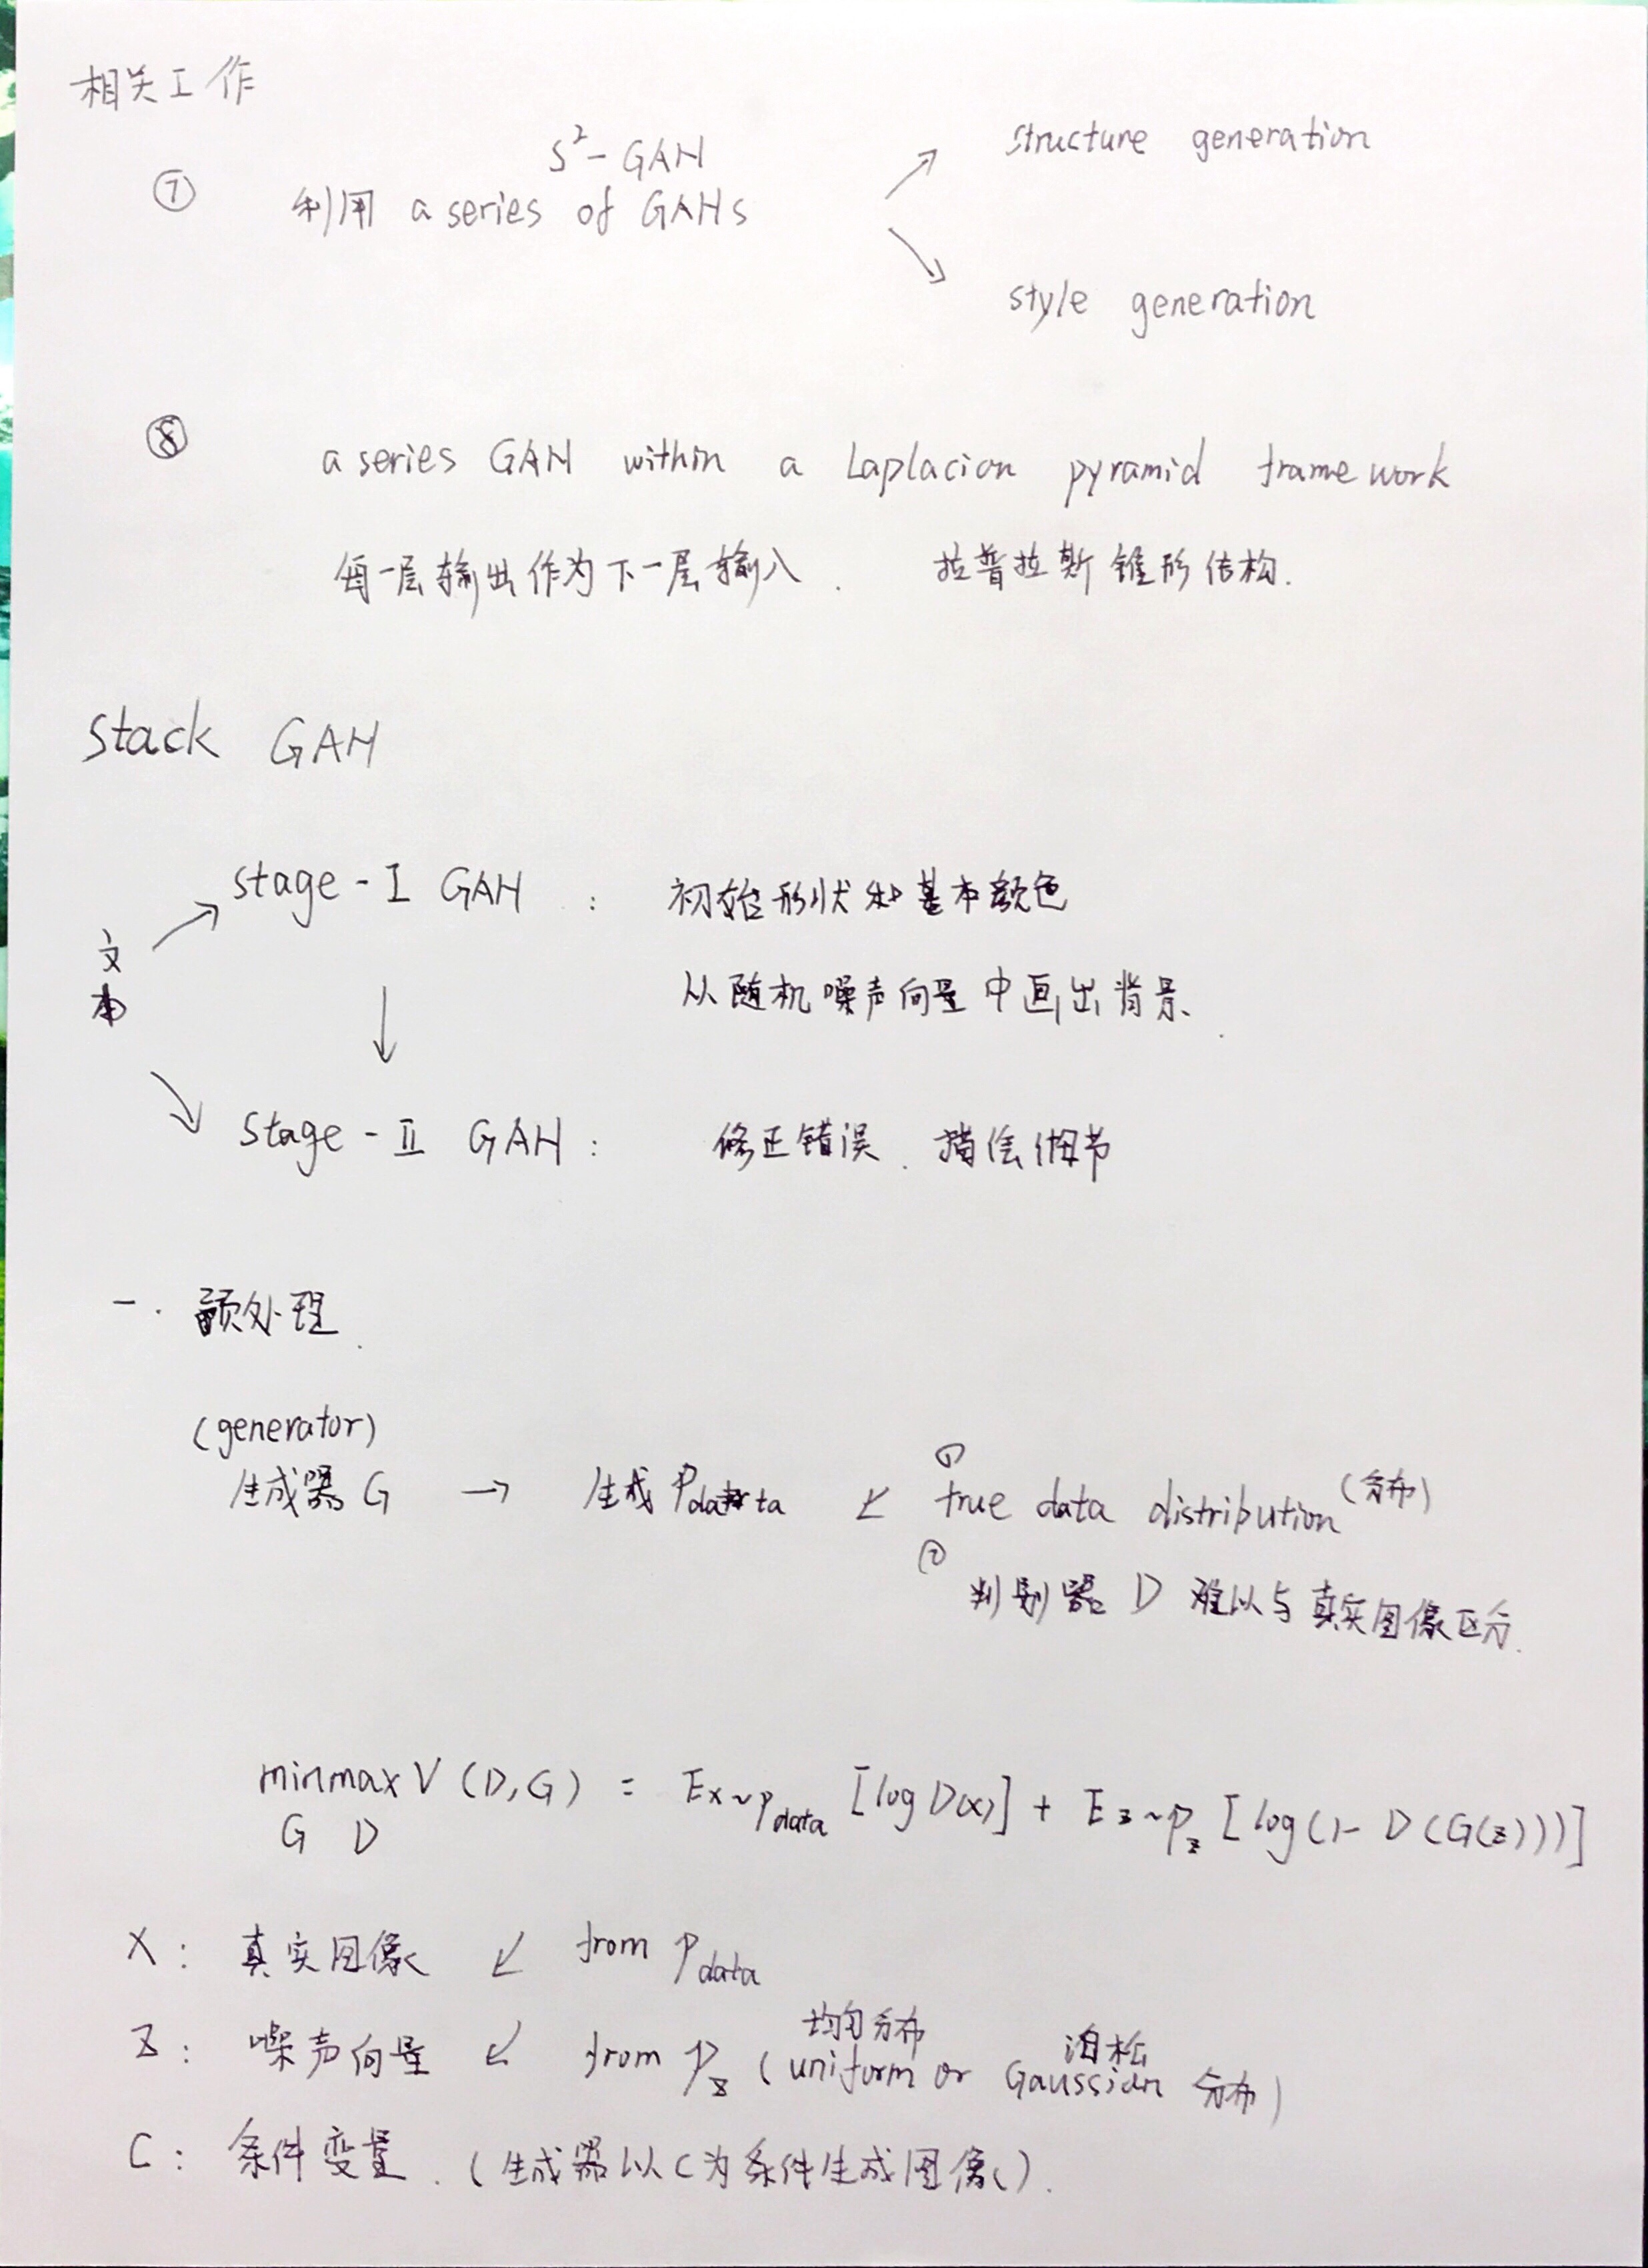 相关工作
S²-GAN
structure generation
⑦ 利用 a series of GANs
style generation
⑧ a series GAN within a Laplacion pyramid framework
每一层输出作为下一层输入. 拉普拉斯锥形结构.
Stack GAN
stage-I GAN : 初始形状和基本颜色
文本
从随机噪声向量中画出背景.
Stage-II GAN : 修正错误. 描绘细节
一. 预处理.
(generator)
生成器 G → 生成 Pdata ↙ ① true data distribution (分布)
② 判别器 D 难以与真实图像区分.
minmax V (D,G) = Ex~Pdata [log D(x)] + Ez~Pz [log(1-D(G(z)))]
G D
X: 真实图像 ↙ from Pdata
均匀分布 泊松
Z: 噪声向量 ↙ from Pz (uniform or Gaussian 分布)
C: 条件变量. (生成器以C为条件生成图像).